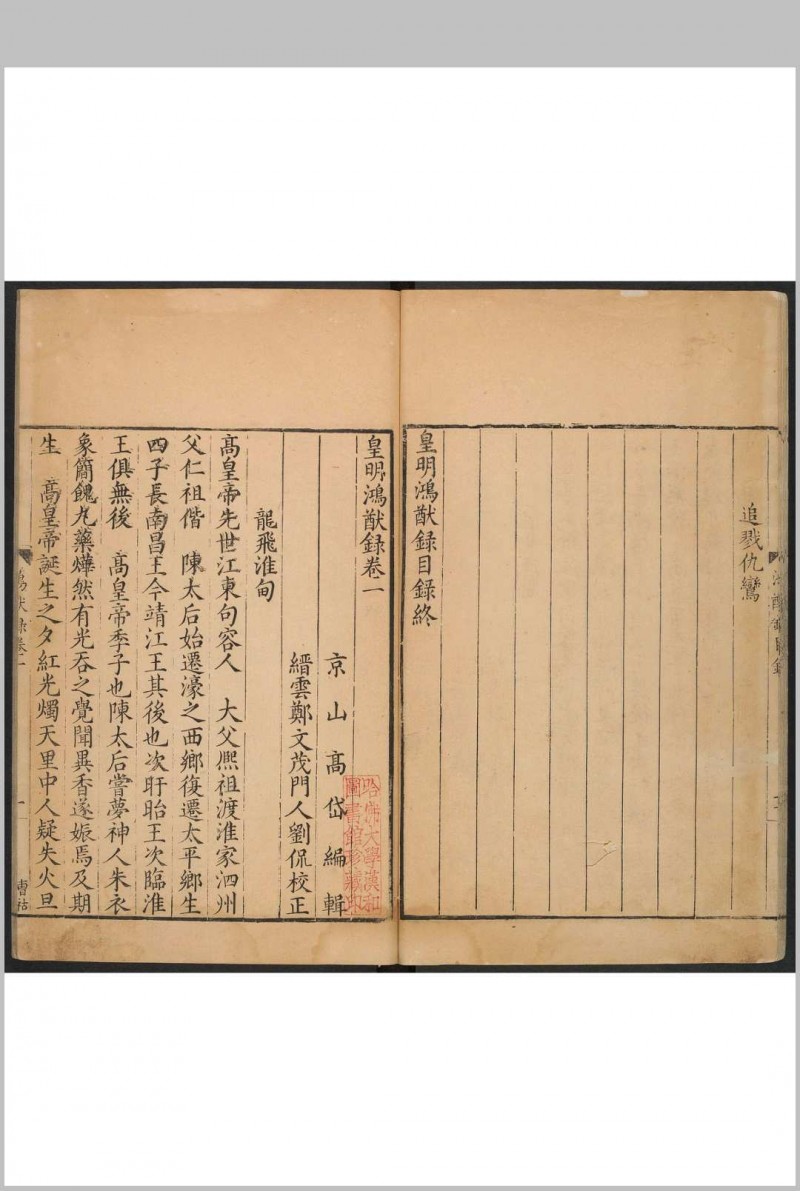 追戮仇鸞
皇明鴻猷錄目錄終
皇明鴻猷錄卷一
京山高岱編輯
縉雲鄭文茂門人劉侃校正
龍飛淮甸
高皇帝先世江東句容人　大父熈祖渡淮家泗州
父仁祖偕　陳太后始遷濠之西鄉復遷太平鄉生
四子長南昌王今靖江王其後也次盱眙王次臨淮
王俱無後　高皇帝季子也陳太后嘗夢神人朱衣
象簡餽丸藥燁然有光吞之覺聞異香遂娠焉及期
生　高皇帝誕生之夕紅光燭天里中人疑失火旦
哈佛大學漢和
圖書館珍藏印
曹祜